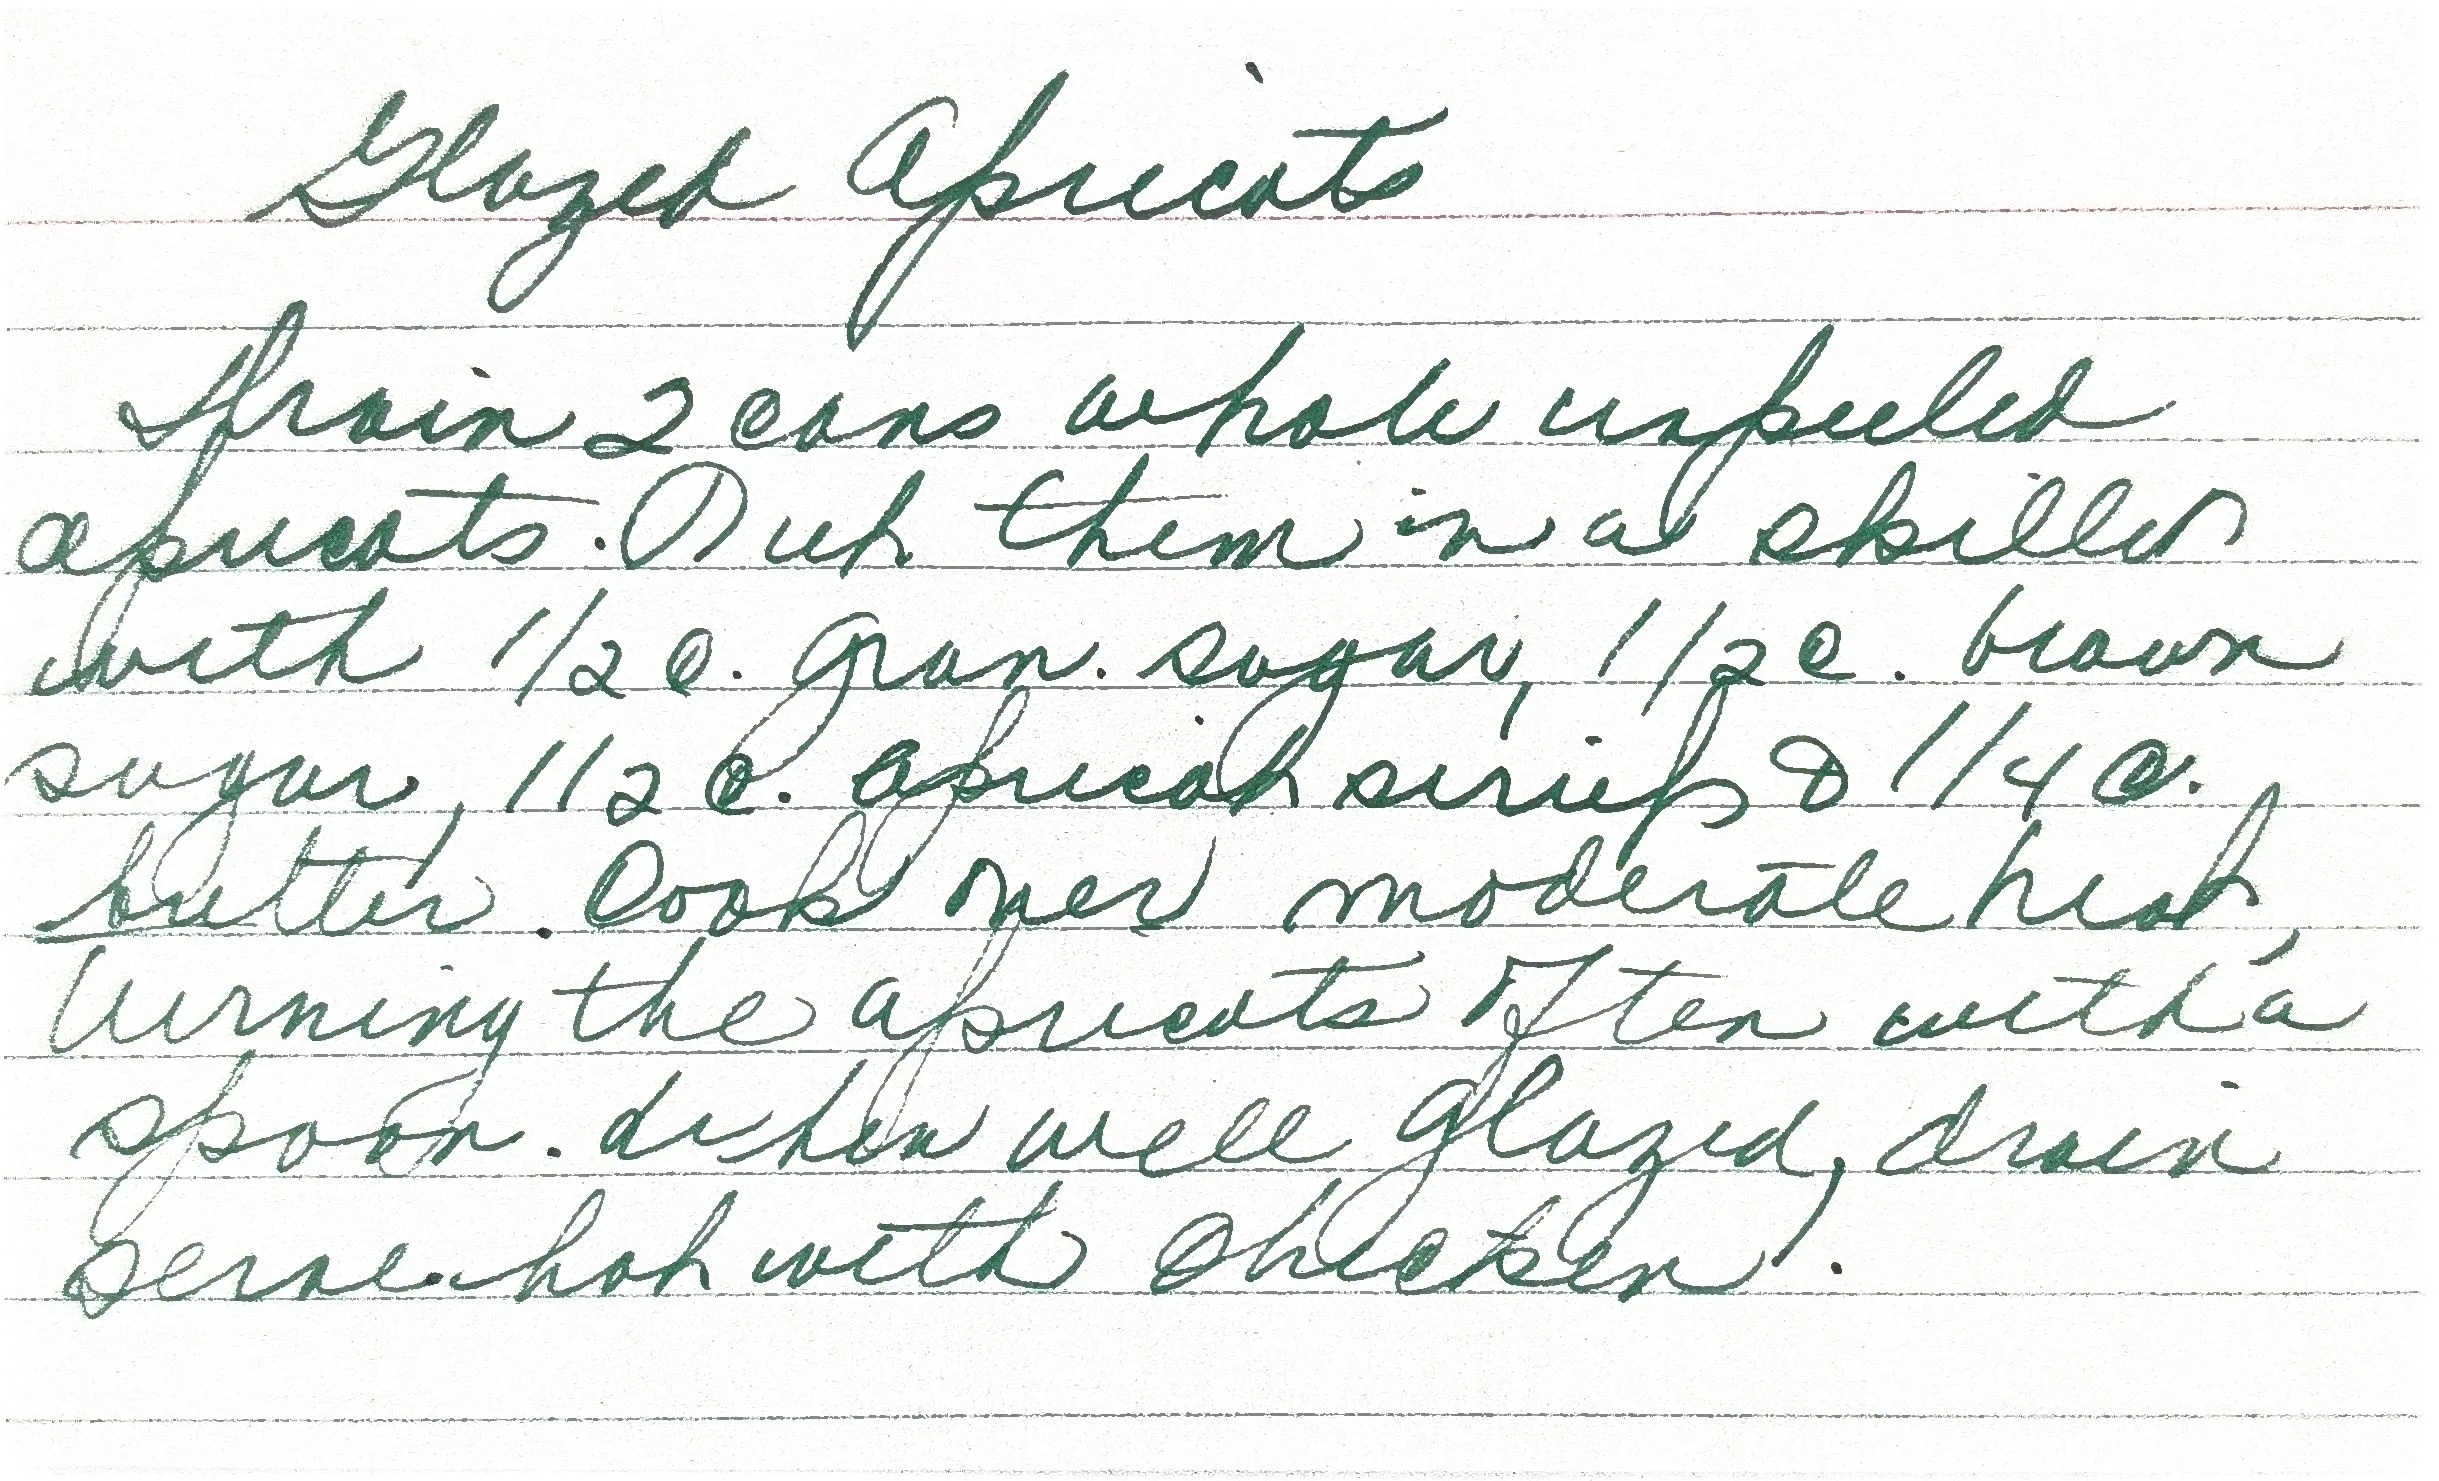 Glazed Apricots
Drain 2 cans whole unpeeled
apricots. Put them in a skillet
with 1/2 c. gran. sugar, 1/2 c. brown
sugar, 1/2 c. apricot sirup & 1/4 c.
butter. Cook over moderate heat,
turning the apricots often with a
spoon. When well glazed, drain
serve hot with chicken.